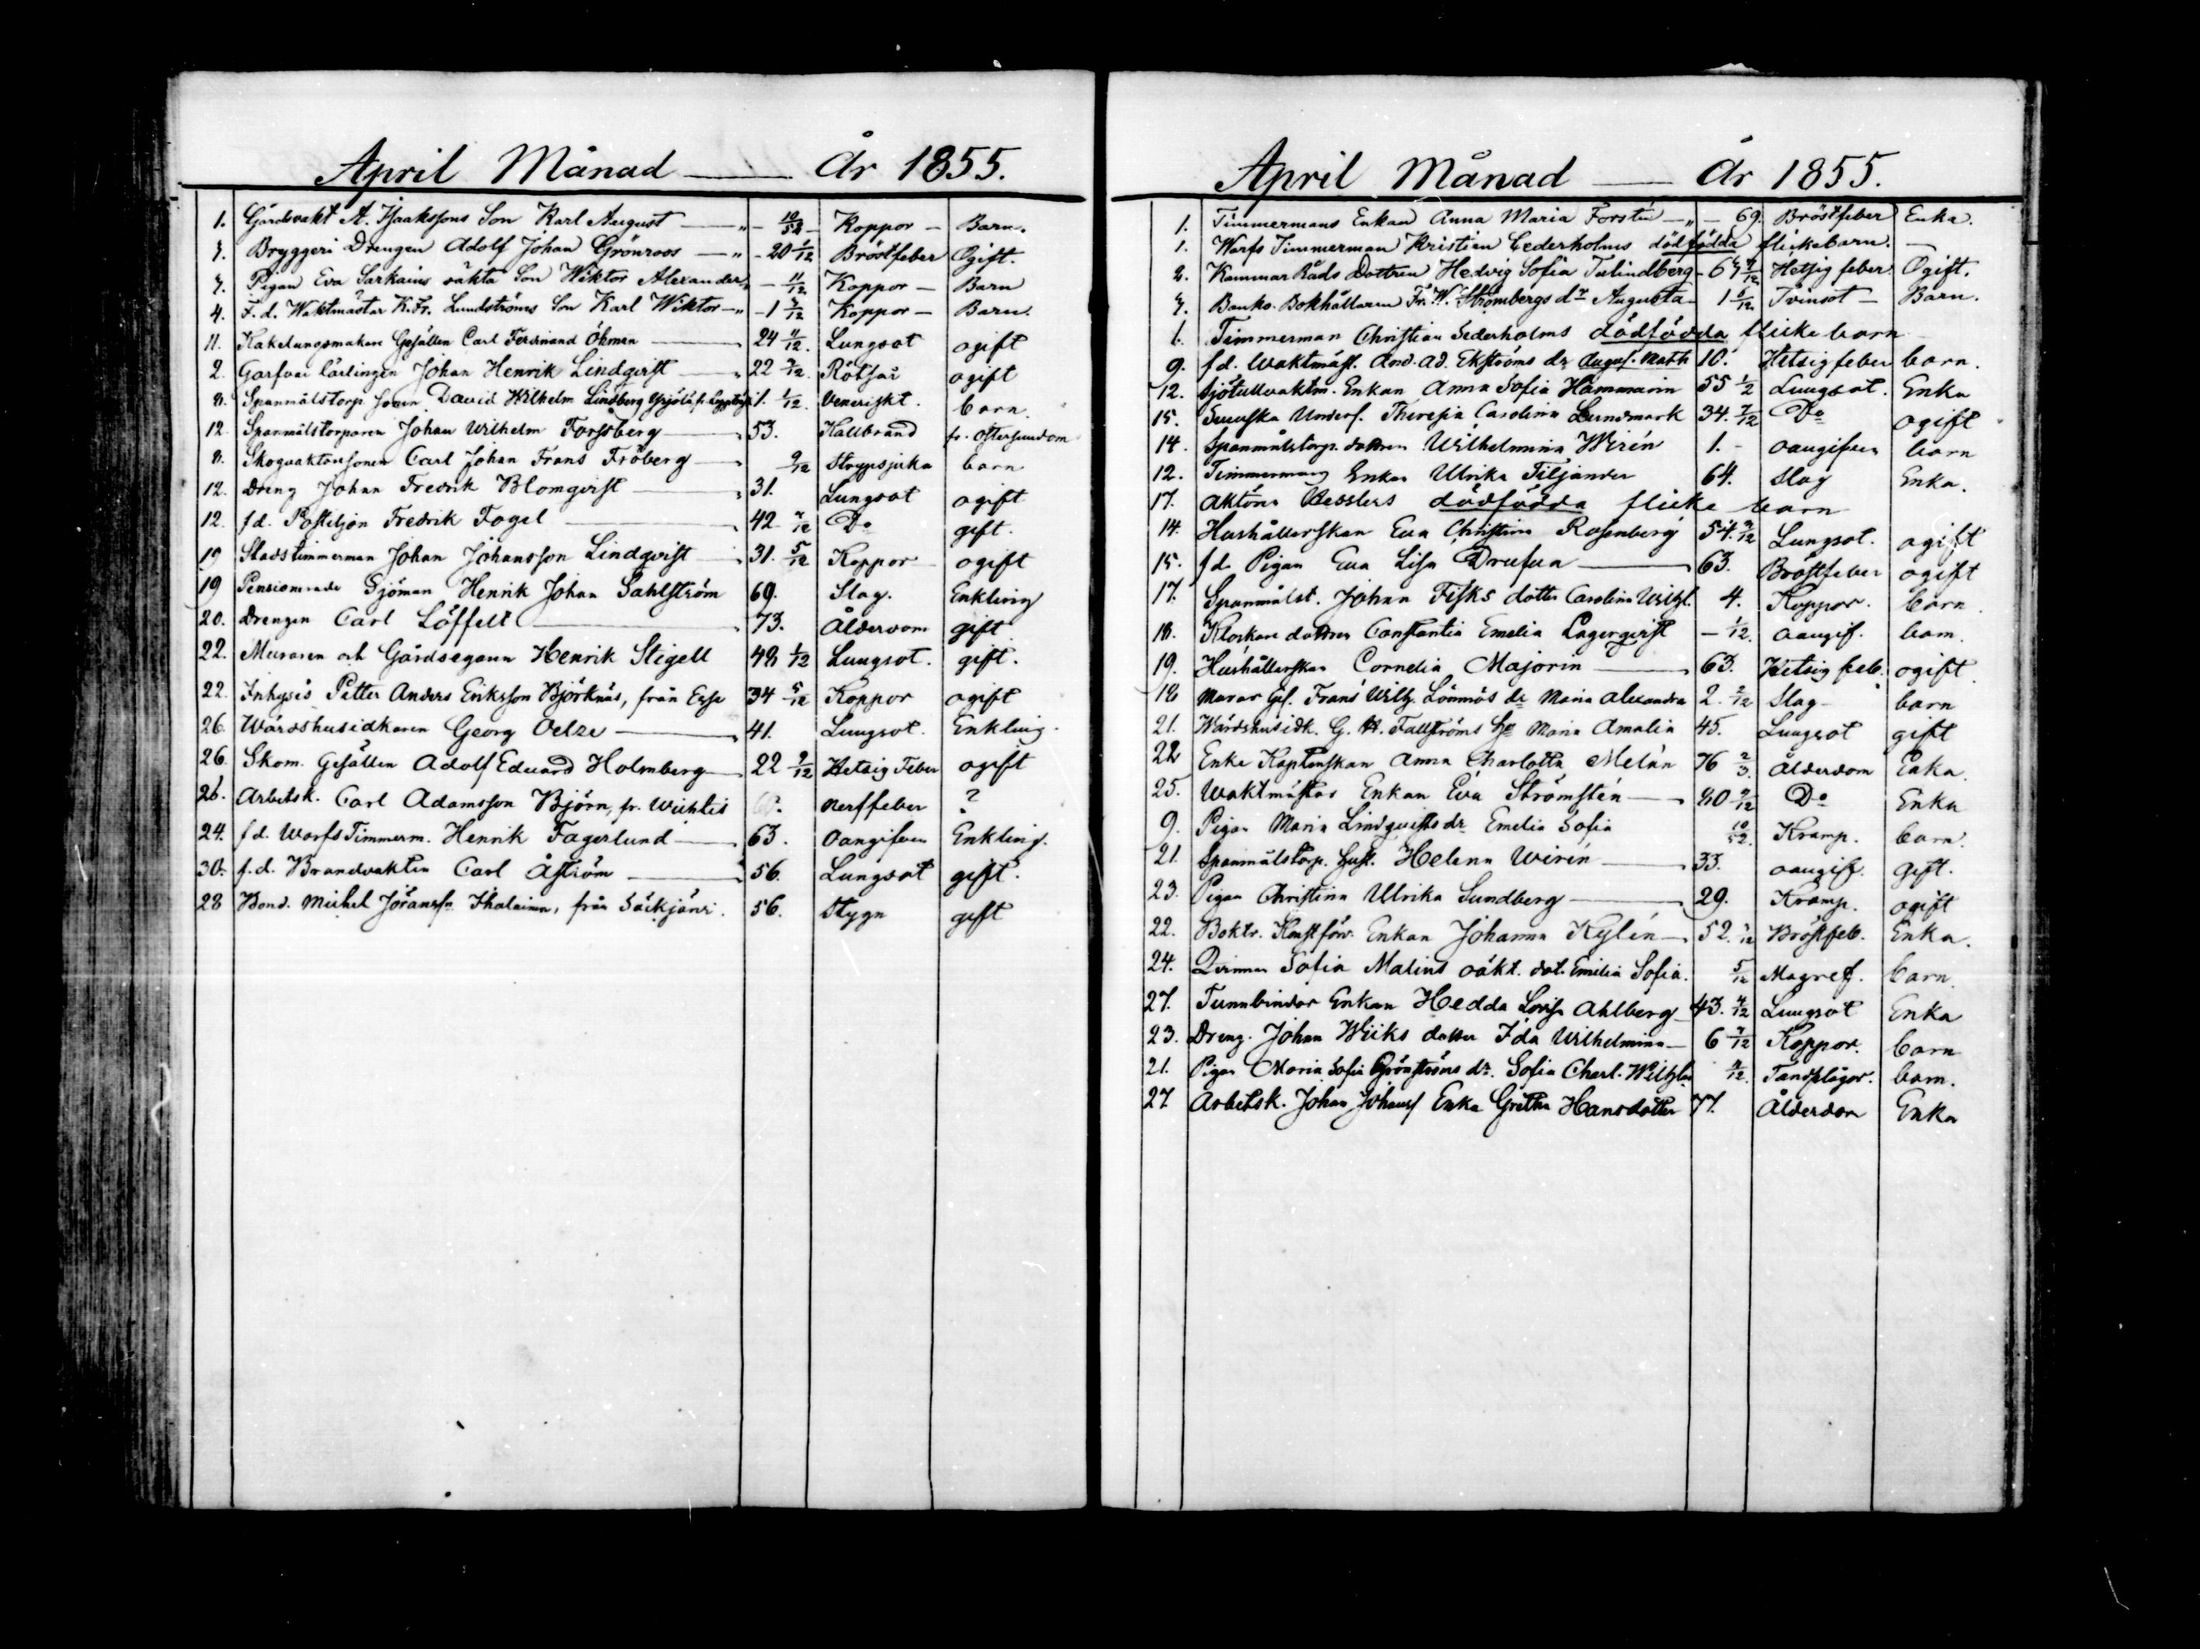 April Månad — År 1855.
1. Gårdsvakt A. Isaakssons Son Karl August — " - 10/52 - Koppor - Barn.
3. Bryggeri Drengen Adolf Johan Grönroos — " - 20 1/12 Bröstfeber Ogift.
3. Pigan Eva Sarkains oäkta Son Wiktor Alexander " - 11/12 Koppor - Barn
4. F. d. Waktmästar K. Fr. Lundströms Son Karl Wiktor — " - 1 3/12 Koppor - Barn.
11. Kakelungsmakare Gesällen Carl Ferdinand Öhman — 24 11/12. Lungsot ogift
2. Garfvar Lärlingen Johan Henrik Lindqvist — 22 7/12. Rötfår ogift
8. Spanmålstorp. sonen David Wilhelm Lindberg 1. 1/12. Veneriskt. barn.
12. Spanmålstorparen Johan Wilhelm Forssberg — 53. Kallbrand fr. Östersundom
8. Skogvaktarsonen Carl Johan Frans Fröberg — 9/12 Strypsjuka barn
12. Dreng Johan Fredrik Blomqvist — 31. Lungsot ogift
12. fd. Postiljon Fredrik Fogel — 42 7/12 Do gift.
19 Stadstimmerman Johan Johansson Lindqvist — 31. 5/12 Koppor ogift
19 Pensionerade Sjöman Henrik Johan Sahlström 69. Slag. Enkling
20. Drengen Carl Löffelt — 73. Ålderdom gift
22. Muraren och Gårdsegaren Henrik Stigell 48 1/12 Lungsot. gift.
22. Inhyses Petter Anders Eriksson Björknäs, från Esse 34 5/12 Koppor ogift
26. Wärdshusidkaren Georg Oelze — 41. Lungsot. Enkling.
26. Skom. Gesällen Adolf Eduard Holmberg — 22 9/12 Hetsig Feber ogift
26. Arbetsk. Carl Adamsson Björn, fr. Wichtis nerffeber ?
24. f d. Warfs Timmerm. Henrik Fagerlund — 63. oangifven Enkling.
30. f.d. Brandvakten Carl Åström — 56. Lungsot gift.
28 Bond. Michel Jöranss. från Säckjärvi. 56. Stygn gift
April Månad — År 1855.
1. Timmermans Enkan Anna Maria Forstén — " - 69. Bröstfeber Enka.
1. Warfs Timmerman Kristian Cederholms dödfödda flickebarn. —
2. Kammar Råds Dottren Hedvig Sofia Tulindberg - 63 9/12 Hetsig feber Ogift.
3. Banko Bokhållaren Fr. W. Strömbergs dr Augusta - 1 1/12 Tvinsot - Barn.
1. Timmerman Christian Sederholms dödfödda flicke barn
9. fd. Waktmäst. And. Ad. Ekströms dr August. Math. 10. Hetsig feber barn.
12. Sjötullvaktm. Enkan Anna Sofia Hammarin 55 1/2 Lungsot. Enka
15. Svenska Unders. Theresia Carolina Lundmark 34. 7/12 Do ogift
14. Spanmålstorp. dottren Wilhelmina Wirén 1. - oangifven barn
12. Timmermans Enkan Ulrika Tiljander 64. slag Enka.
17. Aktörn Besslers dödfödda flicke barn
14. Hushållerskan Eva Christina Rosenberg 54. 9/12 Lungsot. ogift
15. fd. Pigan Eva Lisa Drufva — 63. Bröstfeber ogift
17. Spanmålst. Johan Fisks dotter Carolina Wilhl. 4. Koppor. barn.
18. Klockare dottren Constantia Emelia Lagerqvist - 1/12. oangif. barn.
19. Hushållerskan Cornelia Majorin — 63. Hetsig feb. ogift.
18 Murar Ges. Frans Wilh. Lönnrös dr Maria Alexandra 2. 2/12 Slag barn
21. Wärdshusidk. G. A. Fallströms Ho Maria Amalia 45. Lungsot gift
22 Enke Kaptenskan Anna Charlotta Melán 76 2/3. Ålderdom Enka.
25. Waktmästar Enkan Eva Strömstén — 80 9/12 Do Enka
9. Pigan Maria Lindqvists dr Emelia Sofia 10/52. Kramp. barn.
21. Spanmålstorp. hust. Helena Wirén — 33. oangif. gift.
23. Pigan Christina Ulrika Sundberg — 29. Kramp. ogift
22. Boktr. Konstförv. Enkan Johanna Kylén — 52. 7/12 Bröstfeb. Enka.
24. Qvinnan Sofia Malins oäkt. dot. Emilia Sofia. 5/12 Magref. barn.
27. Tunnbindar Enkan Hedda Lovisa Ahlberg — 43. 4/12 Lungsot Enka
23. Dreng. Johan Wiiks dotter Ida Wilhelmina — 6 7/12 Koppor. barn
21. Pigan Maria Sofia Grönströms dr. Sofia Charl. Wilhl. 4/12. Tandplågor. barn.
27. Arbetsk. Johan Johanss Enka Gretha Hansdotter 77. Ålderdom Enka